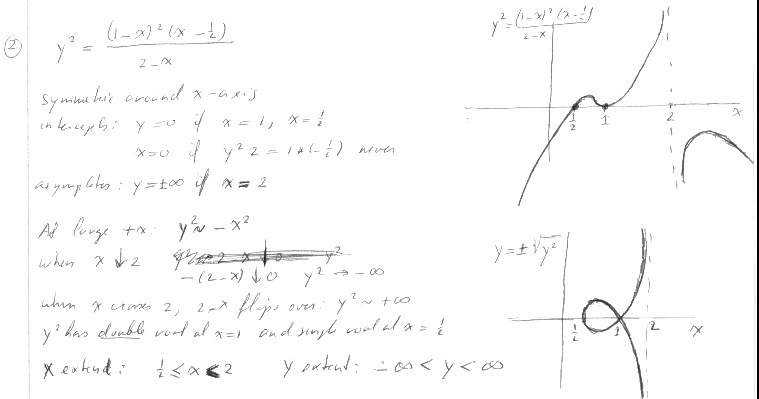 ②
y² = (1-x)²(x-½) / 2-x
symmetric around x-axis
intercepts: y=0 if x=1, x=½
x=0 if y²2=1*(-½) never
asymptotes: y=±∞ if x=2
At large +x: y² ~ -x²
when x↓2
-(2-x)↓0 y² → -∞
when x crosses 2, 2-x flips over: y² ~ +∞
y² has double root at x=1 and single root at x=½
x extend: ½ ≤ x < 2 y extent: -∞ < y < ∞
y² = (1-x)²(x-½) / 2-x
½ 1 2 x
y = ±√y²
½ 1 2 x